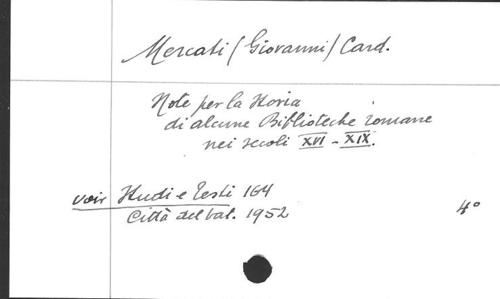 Mercati (Giovanni) Card.
Note per la storia
di alcune Biblioteche romane
nei secoli XVI - XIX.
voir Studi e Testi 164
Città del Vat. 1952
4°